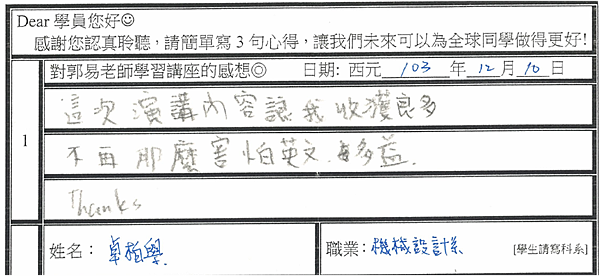 Dear 學員您好☺
感謝您認真聆聽，請簡單寫 3 句心得，讓我們未來可以為全球同學做得更好!
對郭易老師學習講座的感想◎ 日期: 西元 103 年 12 月 10 日
1
這次演講內容讓我收獲良多
不再那麼害怕英文、多益.
Thanks
姓名： 卓柏學 職業： 機械設計系 [學生請寫科系]